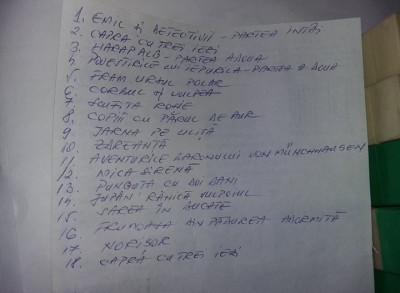 1. EMIL ȘI DETECTIVII - PARTEA ÎNTÎI
2. CAPRA CU TREI IEZI
3. HARAP ALB - PARTEA A DOUA
4. POVESTIRILE LUI IEPURILA - PARTEA A DOUA
5. FRAM URSUL POLAR
6. CORBUL ȘI VULPEA
7. SCUFIȚA ROȘIE
8. COPIII CU PĂRUL DE AUR
9. IARNA PE ULIȚĂ
10. ZDREANȚĂ
11. AVENTURILE BARONULUI VON MÜNCHHAUSEN
12. MICA SIRENĂ
13. PUNGUȚA CU DOI BANI
14. JUPÂN RĂNICĂ VULPOIUL
15. SAREA ÎN BUCATE
16. FRUMOASA DIN PĂDUREA ADORMITĂ
17. NORIȘOR
18. CAPRA CU TREI IEZI